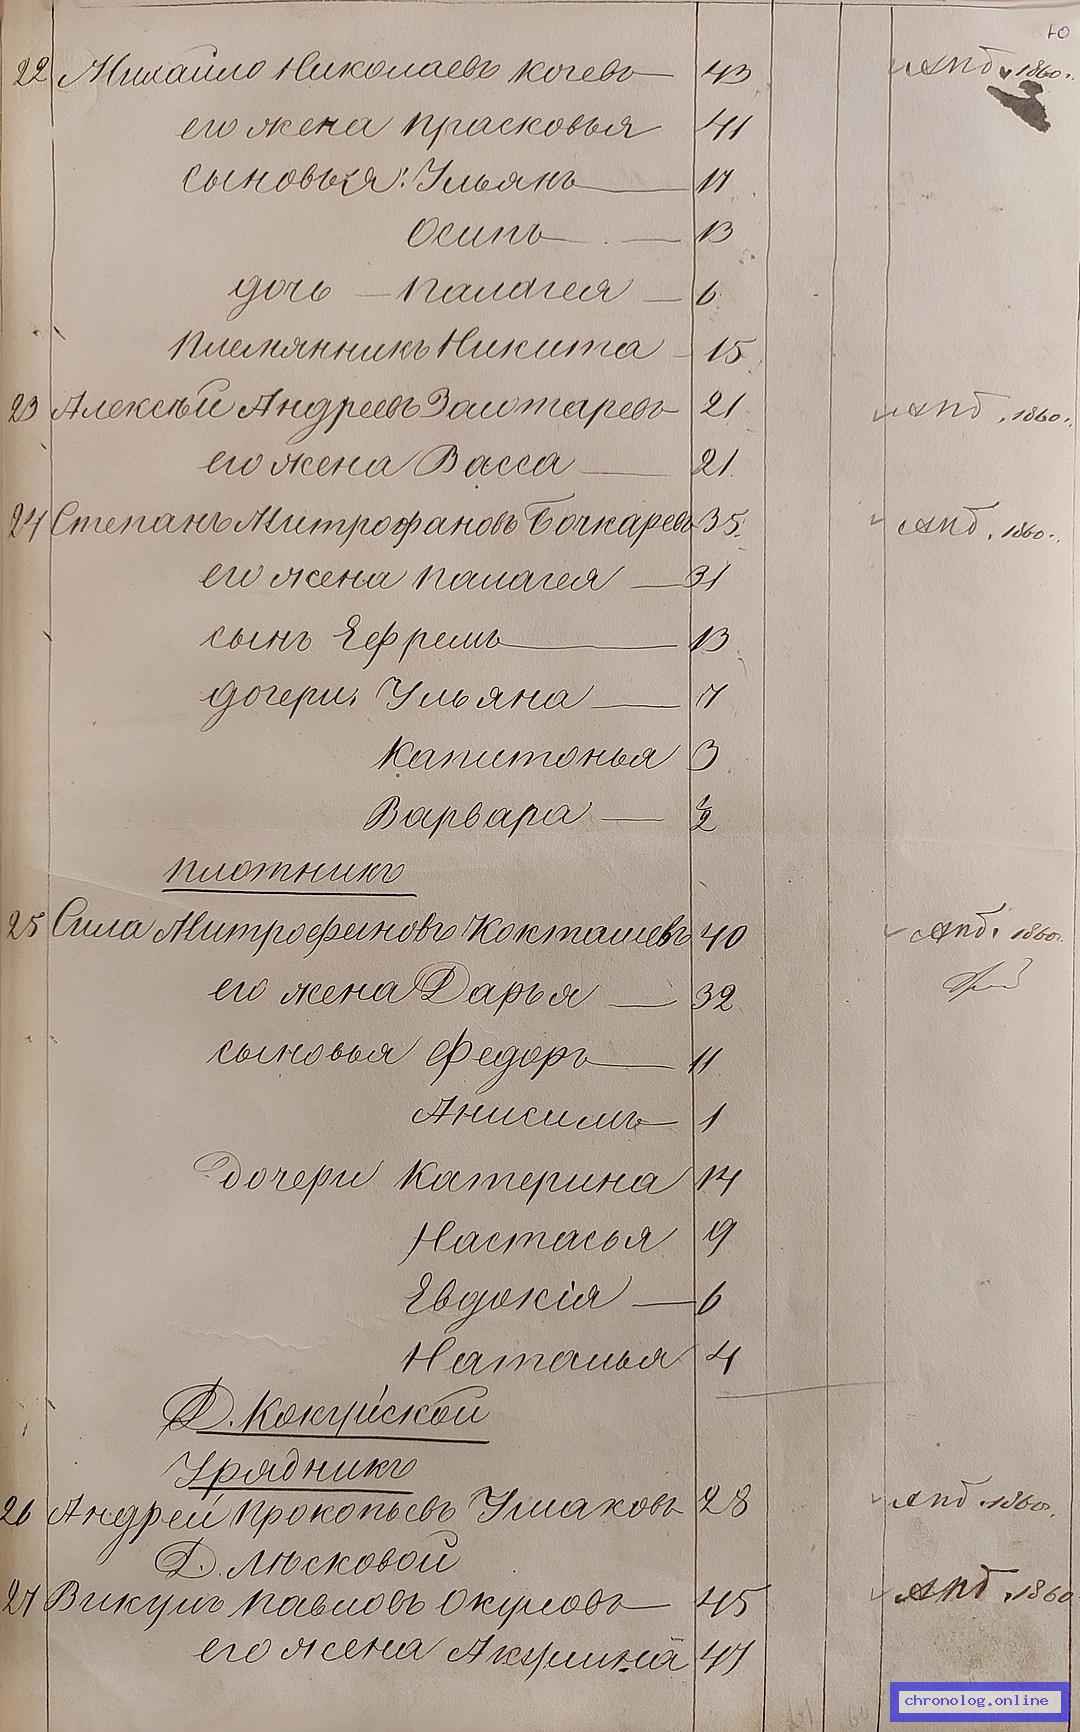 22 Михайло Николаевъ Кочевъ 43 Апб. 1860.
его жена Прасковья 41
сыновья: Ульянъ 17
Осипъ 13
дочь Палагея 6
Племянникъ Никита 15
23 Алексѣй Андреевъ Золотаревъ 21 Апб. 1860.
его жена Васса 21
24 Степанъ Митрофановъ Бочкаревъ 35 Апб. 1860.
его жена Палагея 31
сынъ Ефремъ 13
дочери: Ульяна 7
Капитонья 3
Варвара 1/2
Плотникъ
25 Сила Митрофановъ Кокташевъ 40 Апб. 1860.
его жена Дарья 32
сыновья Федоръ 11
Анисимъ 1
Дочери Катерина 14
Настасья 9
Евдокія 6
Наталья 4
Д. Кокуйской
Урядникъ
26 Андрей Прокопьевъ Ушаковъ 28 Апб. 1860.
Д. Лѣсковой
27 Викулъ Павловъ Окуловъ 45 Апб. 1860
его жена Акулина 47
chronolog.online